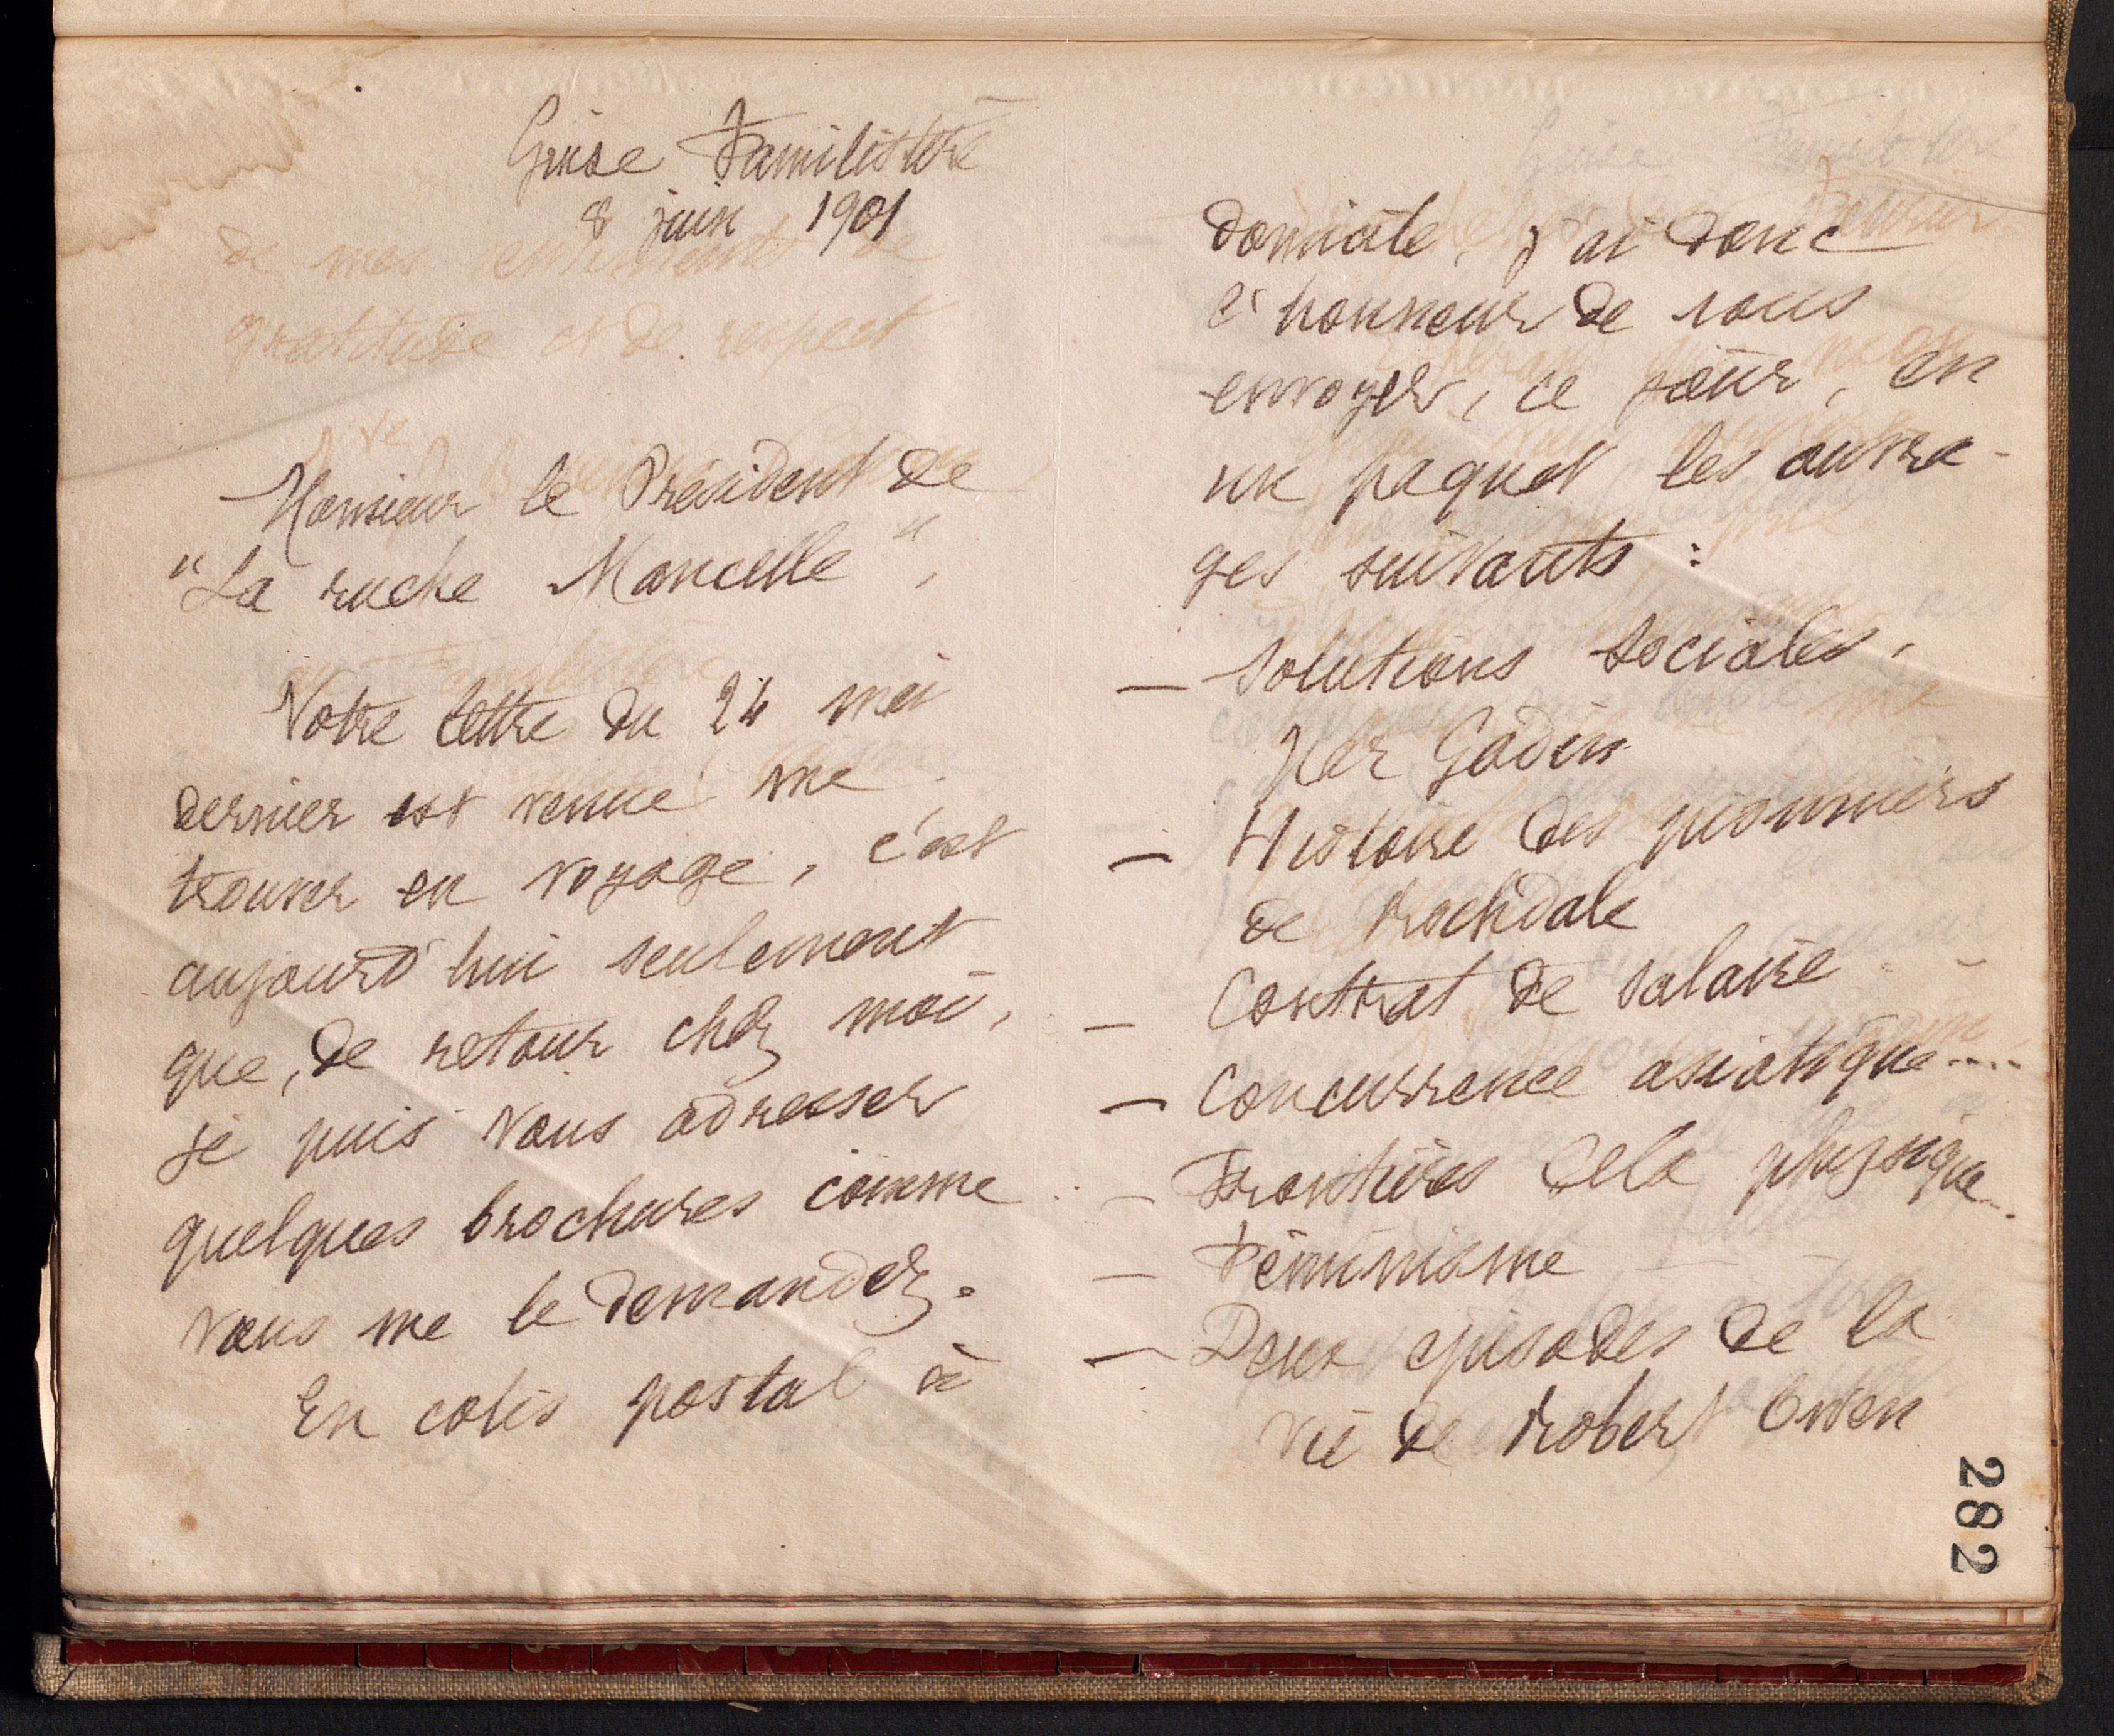 Guise Familistère
8 juin 1901
Monsieur le Président de
"La ruche Marcelle",
Votre lettre du 24 mai
dernier est venue me
trouver en voyage, c'est
aujourd'hui seulement
que, de retour chez moi,
je puis vous adresser
quelques brochures comme
vous me le demandez.
En colis postal à
domicile, j'ai donc
l'honneur de vous
envoyer, ce jour, en
un paquet les ouvra-
ges suivants :
— Solutions sociales,
par Godin
— Histoire des pionniers
de Rochdale
— Contrat de salaire
— Concurrence asiatique....
— Frontières de la physique...
— Féminisme
— Deux épisodes de la
vie de Robert Owen
282